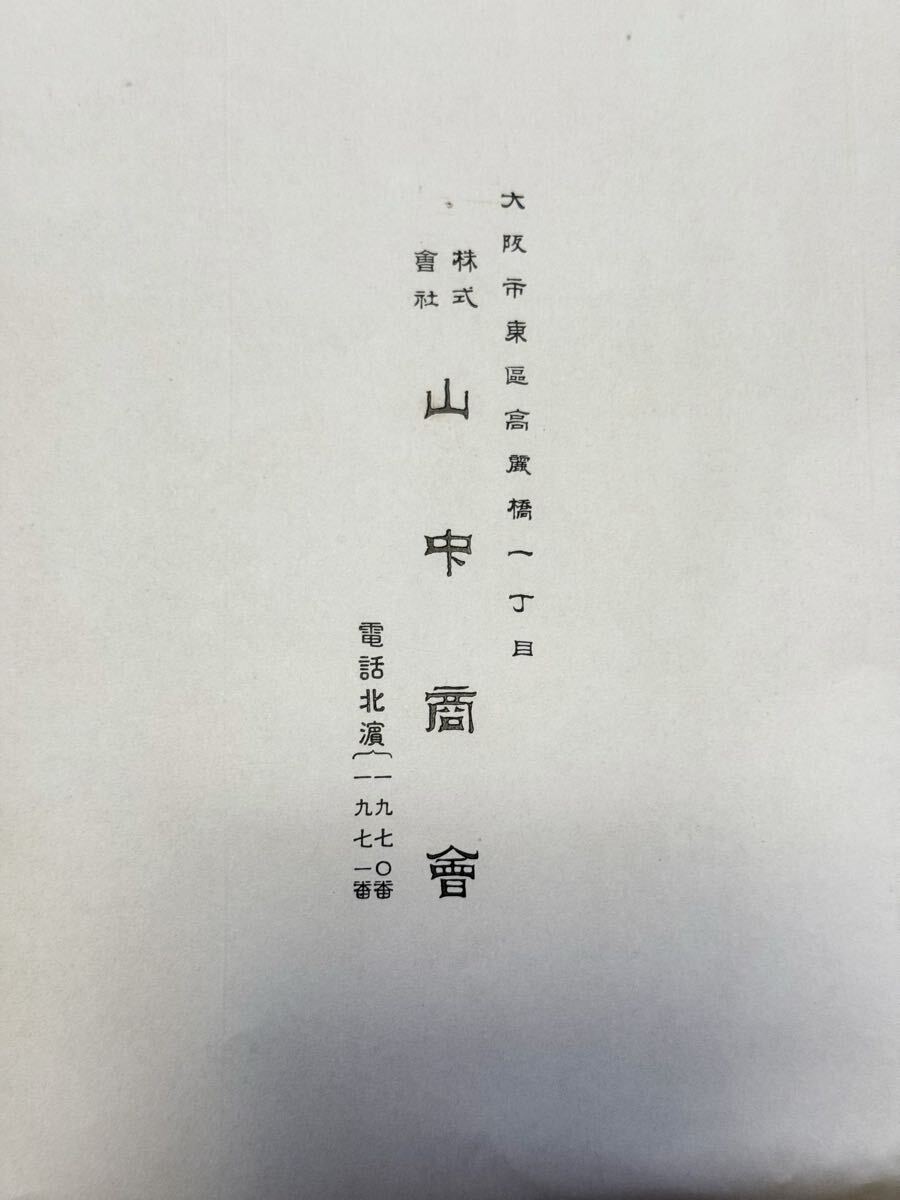 大阪市東區高麗橋一丁目
株式
會社
山中商會
電話北濱{一九七〇番
一九七一番